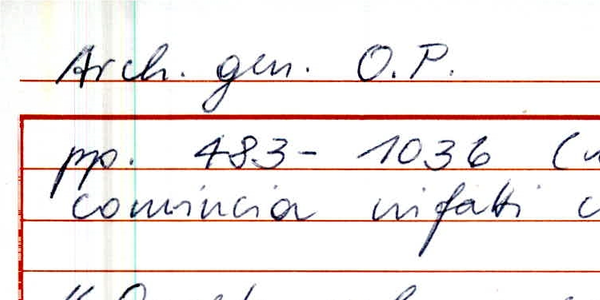 Arch. gen. O.P.
pp. 483-1036 (
comincia infatti